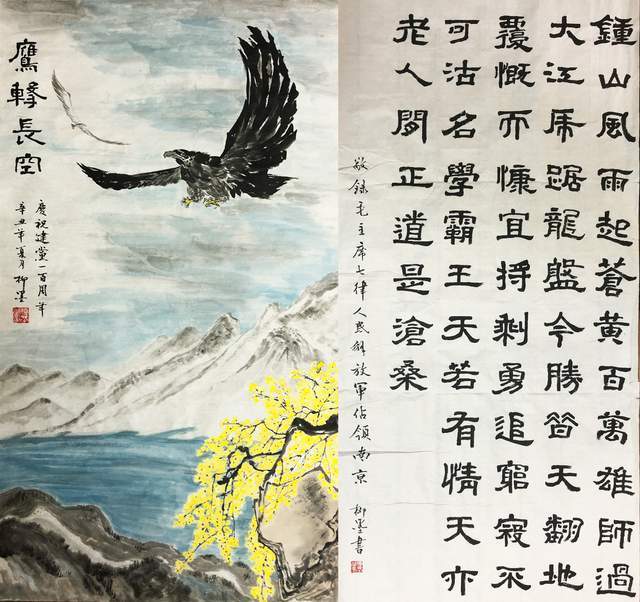 鷹擊長空
慶祝建黨一百周年
辛丑年夏月柳墨
鍾山風雨起蒼黃百萬雄師過
大江虎踞龍盤今勝昔天翻地
覆慨而慷宜將剩勇追窮寇不
可沽名學霸王天若有情天亦
老人間正道是滄桑
敬錄毛主席七律人民解放軍佔領南京 柳墨書